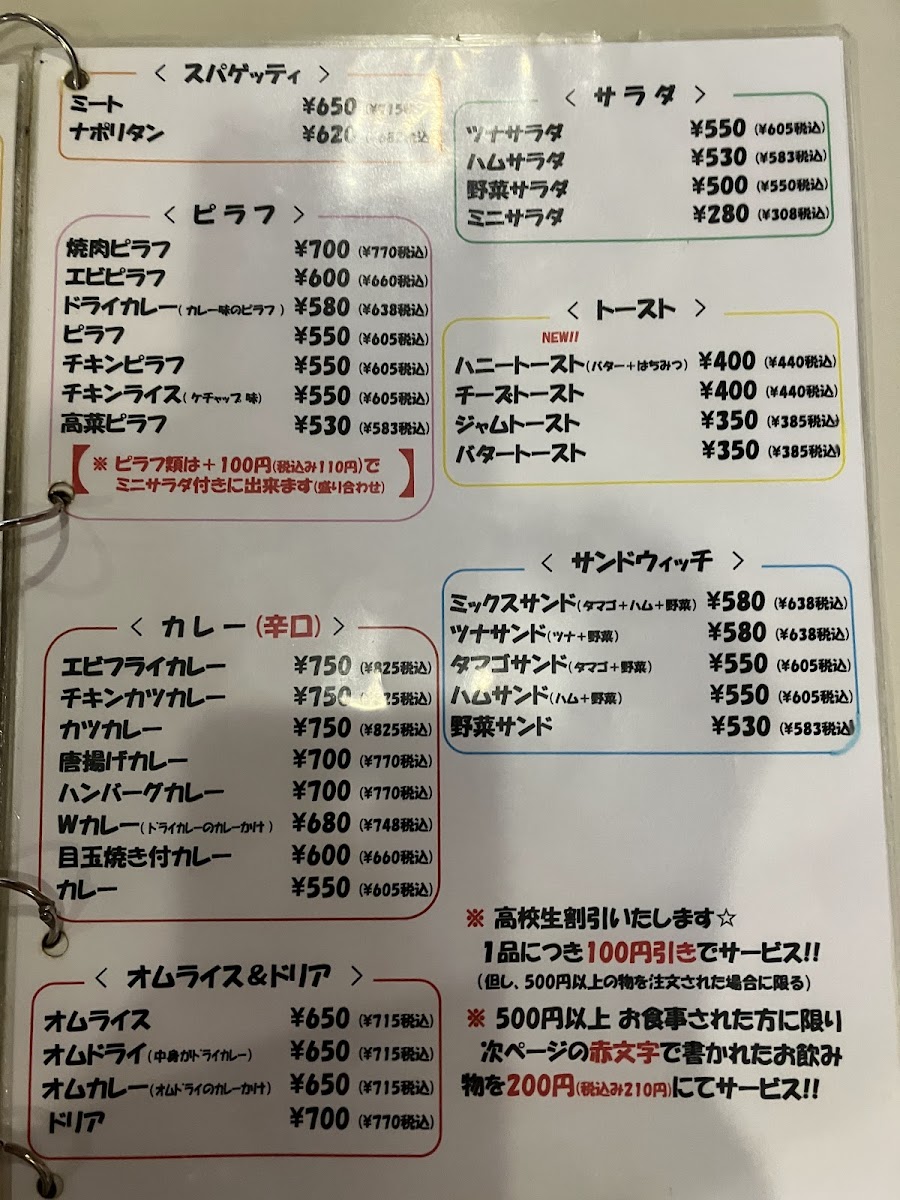 〈 スパゲッティ 〉
ミート ¥650 (¥715
ナポリタン ¥620 税込
〈 ピラフ 〉
焼肉ピラフ ¥700 (¥770税込)
エビピラフ ¥600 (¥660税込)
ドライカレー(カレー味のピラフ) ¥580 (¥638税込)
ピラフ ¥550 (¥605税込)
チキンピラフ ¥550 (¥605税込)
チキンライス(ケチャップ味) ¥550 (¥605税込)
高菜ピラフ ¥530 (¥583税込)
【※ ピラフ類は+100円(税込み110円)で
ミニサラダ付きに出来ます(盛り合わせ)】
〈 カレー(辛口) 〉
エビフライカレー ¥750 (¥825税込)
チキンカツカレー ¥750 税込)
カツカレー ¥750 (¥825税込)
唐揚げカレー ¥700 (¥770税込)
ハンバーグカレー ¥700 (¥770税込)
Wカレー(ドライカレーのカレーかけ) ¥680 (¥748税込)
目玉焼き付カレー ¥600 (¥660税込)
カレー ¥550 (¥605税込)
〈 オムライス&ドリア 〉
オムライス ¥650 (¥715税込)
オムドライ(中身がドライカレー) ¥650 (¥715税込)
オムカレー(オムドライのカレーかけ) ¥650 (¥715税込)
ドリア ¥700 (¥770税込)
〈 サラダ 〉
ツナサラダ ¥550 (¥605税込)
ハムサラダ ¥530 (¥583税込)
野菜サラダ ¥500 (¥550税込)
ミニサラダ ¥280 (¥308税込)
〈 トースト 〉
NEW!!
ハニートースト(バター+はちみつ) ¥400 (¥440税込)
チーズトースト ¥400 (¥440税込)
ジャムトースト ¥350 (¥385税込)
バタートースト ¥350 (¥385税込)
〈 サンドウィッチ 〉
ミックスサンド(タマゴ+ハム+野菜) ¥580 (¥638税込)
ツナサンド(ツナ+野菜) ¥580 (¥638税込)
タマゴサンド(タマゴ+野菜) ¥550 (¥605税込)
ハムサンド(ハム+野菜) ¥550 (¥605税込)
野菜サンド ¥530 (¥583税込)
※ 高校生割引いたします☆
1品につき100円引きでサービス!!
(但し、500円以上の物を注文された場合に限る)
※ 500円以上 お食事された方に限り
次ページの赤文字で書かれたお飲み
物を200円(税込み210円)にてサービス!!